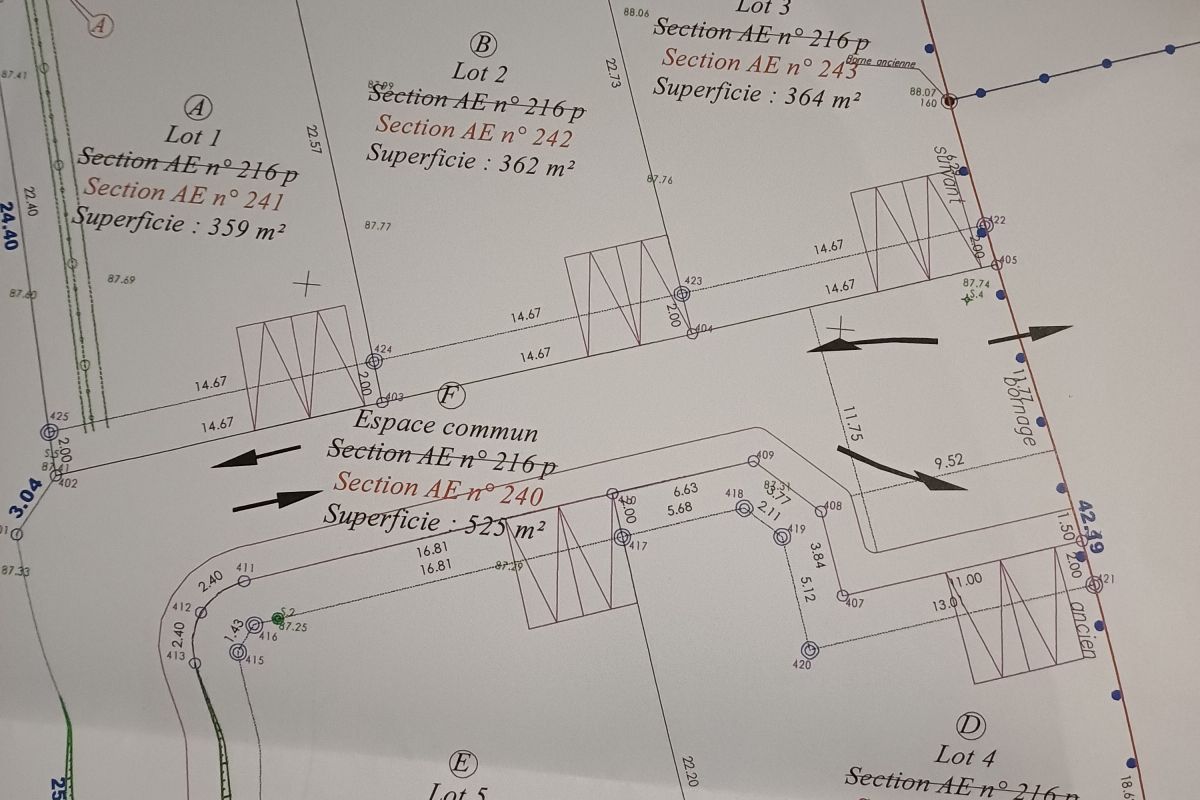 A
87.41
A
Lot 1
Section AE n° 216 p
Section AE n° 241
Superficie : 359 m²
B
Lot 2
87.99
Section AE n° 216 p
Section AE n° 242
Superficie : 362 m²
88.06
Lot 3
Section AE n° 216 p
Section AE n° 243
Superficie : 364 m²
Borne ancienne
88.07
160
22.73
22.57
22.40
24.40
87.76
87.77
87.69
87.60
suivant
422
2.00
405
87.74
S.4
14.67
14.67
423
2.00
404
14.67
14.67
424
2.00
403
14.67
14.67
425
2.00
87.41
402
3.04
87.33
F
Espace commun
Section AE n° 216 p
Section AE n° 240
Superficie : 525 m²
11.75
9.52
11.77
bornage
42.49
1.50
2.00
421
ancien
409
87.31
3.77
408
6.63
5.68
418
2.11
419
2.00
417
3.84
5.12
407
11.00
13.01
420
16.81
16.81
87.29
411
2.40
412
2.40
413
S.2
87.25
416
1.43
415
22.20
18.6
25
E
Lot 5
D
Lot 4
Section AE n° 216 p